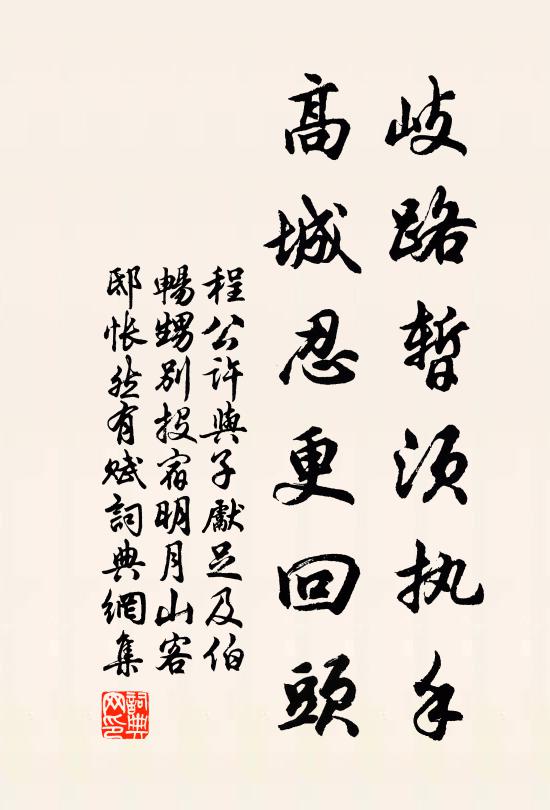 歧路暂须执手
高城忍更回頭
程公許與子獻足及伯
暢甥別投宿明月山客
邸怅然有赋詞典網集
詞典网印